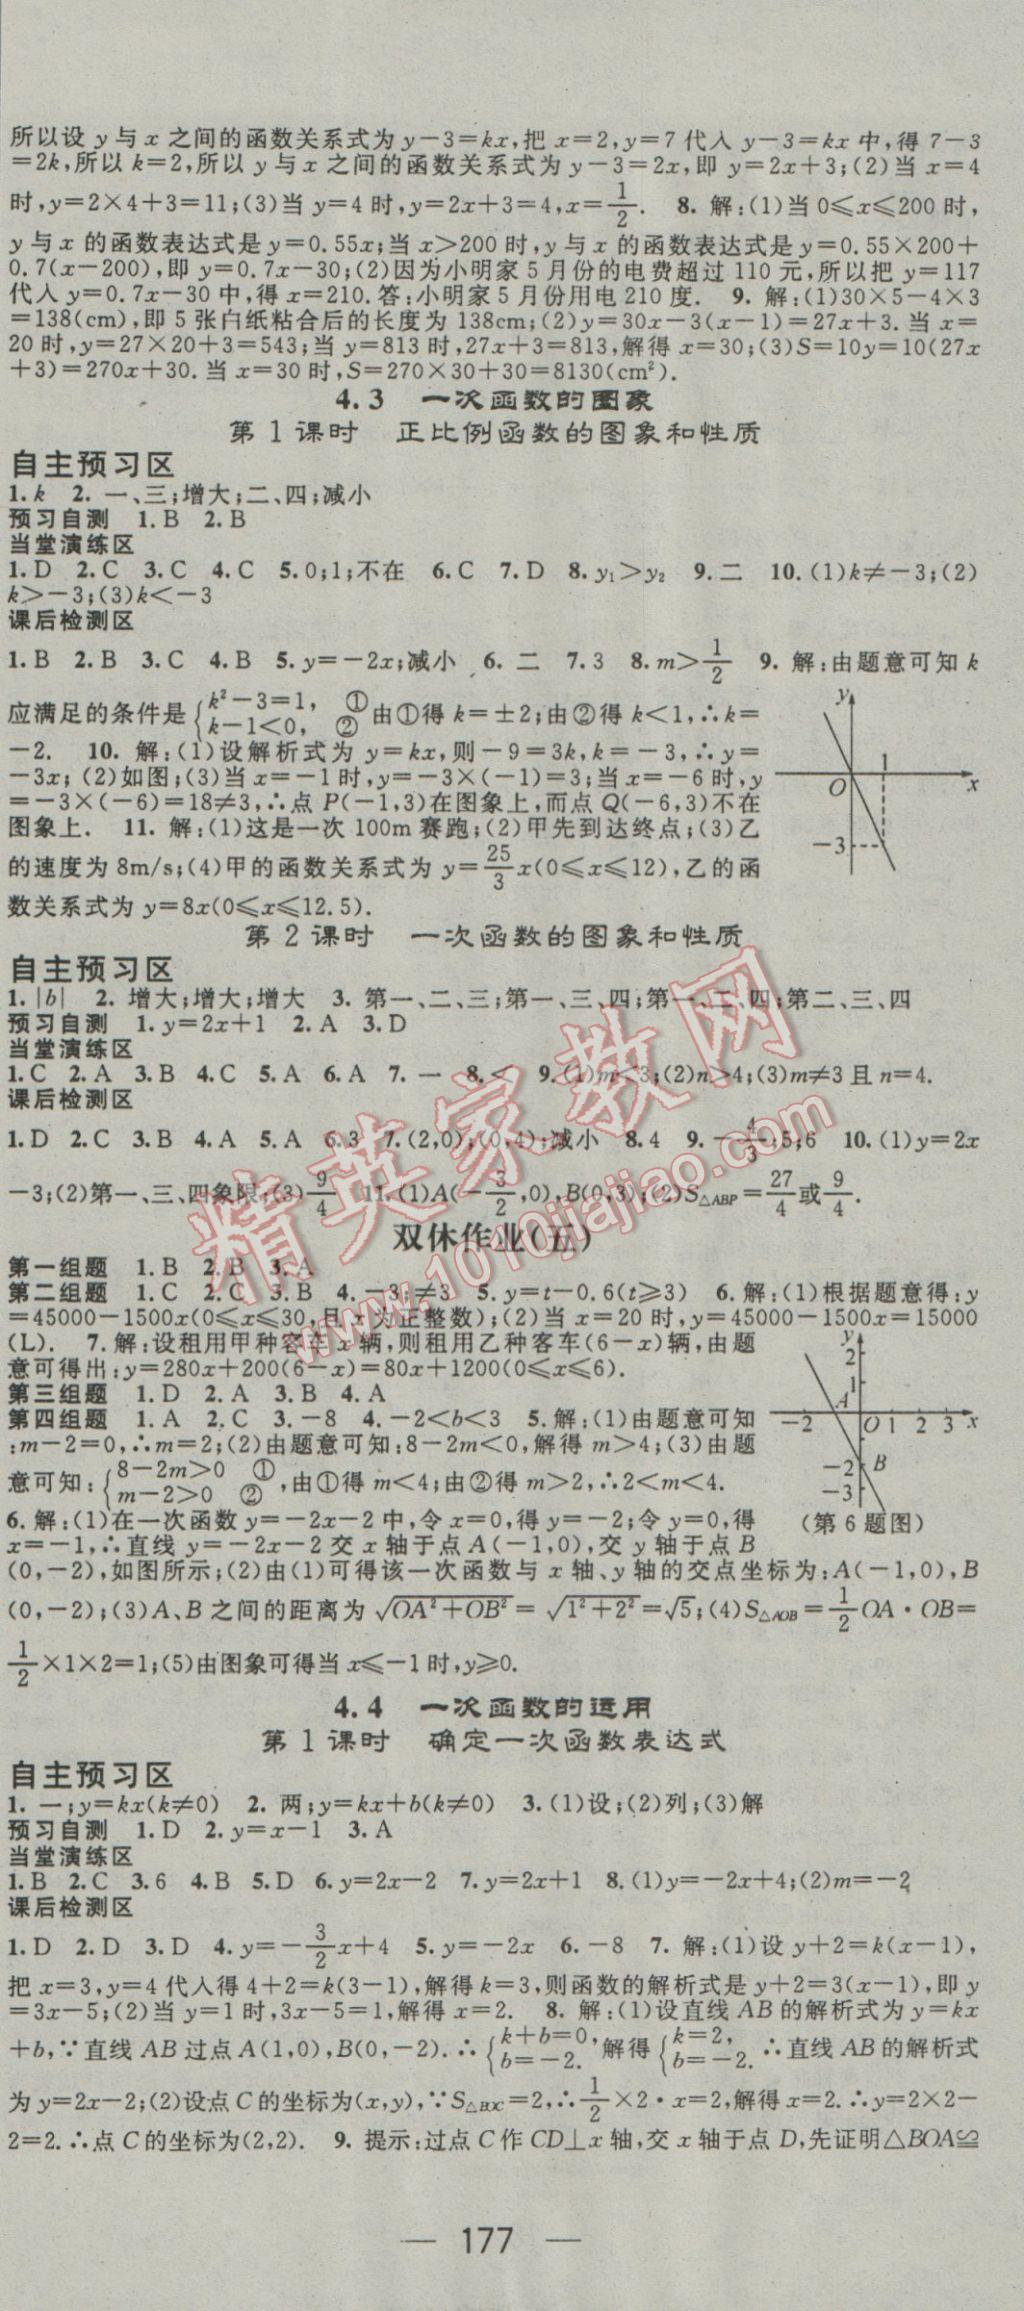 所以设 y 与 x 之间的函数关系式为 y－3＝kx,把 x＝2,y＝7 代入 y－3＝kx 中,得 7－3
＝2k,所以 k＝2,所以 y 与 x 之间的函数关系式为 y－3＝2x,即 y＝2x＋3;(2)当 x＝4
时,y＝2×4＋3＝11;(3)当 y＝4 时,y＝2x＋3＝4,x＝1/2. 8. 解:(1)当 0≤x≤200 时,
y 与 x 的函数表达式是 y＝0.55x;当 x＞200 时,y 与 x 的函数表达式是 y＝0.55×200＋
0.7(x－200),即 y＝0.7x－30;(2)因为小明家 5 月份的电费超过 110 元,所以把 y＝117
代入 y＝0.7x－30 中,得 x＝210.答:小明家 5 月份用电 210 度. 9. 解:(1)30×5－4×3
＝138(cm),即 5 张白纸粘合后的长度为 138cm;(2)y＝30x－3(x－1)＝27x＋3.当 x＝
20 时,y＝27×20＋3＝543;当 y＝813 时,27x＋3＝813,解得 x＝30;(3)S＝10y＝10(27x
＋3)＝270x＋30.当 x＝30 时,S＝270×30＋30＝8130(cm²).
4.3 一次函数的图象
第 1 课时 正比例函数的图象和性质
自主预习区
1. k 2. 一、三;增大;二、四;减小
预习自测 1. B 2. B
当堂演练区
1. D 2. C 3. C 4. C 5. 0;1;不在 6. C 7. D 8. y₁＞y₂ 9. 二 10. (1)k≠－3;(2)
k＞－3;(3)k＜－3
课后检测区
1. B 2. B 3. C 4. B 5. y＝－2x;减小 6. 二 7. 3 8. m＞1/2 9. 解:由题意可知 k
应满足的条件是{k²－3＝1, ① k－1＜0, ② 由①得 k＝±2;由②得 k＜1,∴k＝
－2. 10. 解:(1)设解析式为 y＝kx,则－9＝3k,k＝－3,∴y＝
－3x;(2)如图;(3)当 x＝－1 时,y＝－3×(－1)＝3;当 x＝－6 时,y
＝－3×(－6)＝18≠3,∴点 P(－1,3)在图象上,而点 Q(－6,3)不在
图象上. 11. 解:(1)这是一次 100m 赛跑;(2)甲先到达终点;(3)乙
的速度为 8m/s;(4)甲的函数关系式为 y＝25/3 x(0≤x≤12),乙的函
数关系式为 y＝8x(0≤x≤12.5).
y
1
O
x
－3
第 2 课时 一次函数的图象和性质
自主预习区
1. |b| 2. 增大;增大;增大 3. 第一、二、三;第一、三、四;第一、二、四;第二、三、四
预习自测 1. y＝2x＋1 2. A 3. D
当堂演练区
1. C 2. A 3. B 4. C 5. A 6. A 7. 一 8. ＜ 9. (1)m＜3;(2)n＞4;(3)m≠3 且 n＝4.
课后检测区
1. D 2. C 3. B 4. A 5. A 6. 3 7. (2,0);(0,4);减小 8. 4 9. －4/3;5;6 10. (1)y＝2x
－3;(2)第一、三、四象限;(3)9/4 11. (1)A(－3/2,0),B(0,3);(2)S△ABP＝27/4或9/4.
双休作业(五)
第一组题 1. B 2. B 3. A
第二组题 1. C 2. C 3. B 4. －3;≠3 5. y＝t－0.6(t≥3) 6. 解:(1)根据题意得:y
＝45000－1500x(0≤x≤30,且 x 为正整数);(2)当 x＝20 时,y＝45000－1500x＝15000
(L). 7. 解:设租用甲种客车 x 辆,则租用乙种客车(6－x)辆,由题
意可得出:y＝280x＋200(6－x)＝80x＋1200(0≤x≤6).
第三组题 1. D 2. A 3. B 4. A
第四组题 1. A 2. C 3. －8 4. －2＜b＜3 5. 解:(1)由题意可知
:m－2＝0,∴m＝2;(2)由题意可知:8－2m＜0,解得 m＞4;(3)由题
意可知:{8－2m＞0 ① m－2＞0 ② ,由①得 m＜4;由②得 m＞2,∴2＜m＜4.
6. 解:(1)在一次函数 y＝－2x－2 中,令 x＝0,得 y＝－2;令 y＝0,得
x＝－1,∴直线 y＝－2x－2 交 x 轴于点 A(－1,0),交 y 轴于点 B
y
2
1
A
－2
O 1 2 3 x
－2 B
－3
(第 6 题图)
(0,－2),如图所示;(2)由(1)可得该一次函数与 x 轴、y 轴的交点坐标为:A(－1,0),B
(0,－2);(3)A、B 之间的距离为 √(OA²＋OB²)＝√(1²＋2²)＝√5;(4)S△AOB＝1/2 OA·OB＝
1/2×1×2＝1;(5)由图象可得当 x≤－1 时,y≥0.
4.4 一次函数的运用
第 1 课时 确定一次函数表达式
自主预习区
1. 一;y＝kx(k≠0) 2. 两;y＝kx＋b(k≠0) 3. (1)设;(2)列;(3)解
预习自测 1. D 2. y＝x－1 3. A
当堂演练区
1. B 2. C 3. 6 4. B 5. D 6. y＝2x－2 7. y＝2x＋1 8. (1)y＝－2x＋4;(2)m＝－2
课后检测区
1. D 2. D 3. D 4. y＝－3/2 x＋4 5. y＝－2x 6. －8 7. 解:(1)设 y＋2＝k(x－1),
把 x＝3,y＝4 代入得 4＋2＝k(3－1),解得 k＝3,则函数的解析式是 y＋2＝3(x－1),即 y
＝3x－5;(2)当 y＝1 时,3x－5＝1,解得 x＝2. 8. 解:(1)设直线 AB 的解析式为 y＝kx
＋b,∵直线 AB 过点 A(1,0),B(0,－2).∴{k＋b＝0, b＝－2. 解得{k＝2, b＝－2. ∴直线 AB 的解析式
为 y＝2x－2;(2)设点 C 的坐标为(x,y),∵S△BOC＝2,∴1/2×2·x＝2,解得 x＝2.∴y＝2×2－
2＝2.∴点 C 的坐标为(2,2). 9. 提示:过点 C 作 CD⊥x 轴,交 x 轴于点 D,先证明△BOA≌
— 177 —
精英家教网
www.1010jiajiao.com